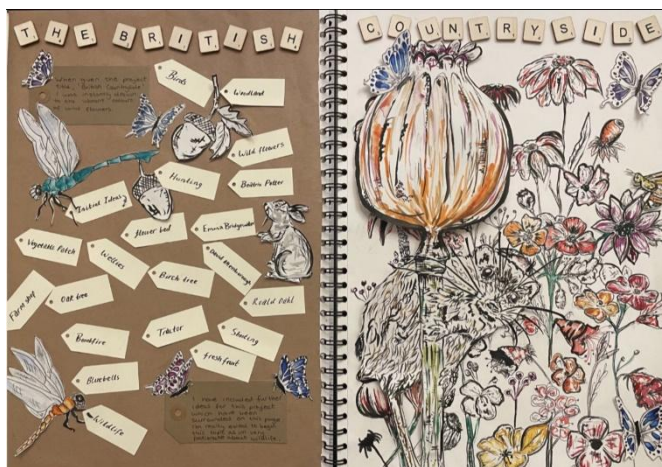 THE BRITISH
COUNTRYSIDE
When given the project
title, 'British Countryside'
I was instantly drawn
to the vibrant colours
of wild flowers.
Birds
Woodland
Wild flowers
Hunting
Beatrix Potter
Initial Ideas
flower bed
Emma Bridgewater
Vegetable Patch
Wellies
David Attenborough
Birch tree
Roald Dahl
Farm shop
Oak tree
Tractor
Shooting
Bonfire
fresh fruit
Bluebells
Wildlife
I have included further
ideas for this project
which have been
surrounded on this page